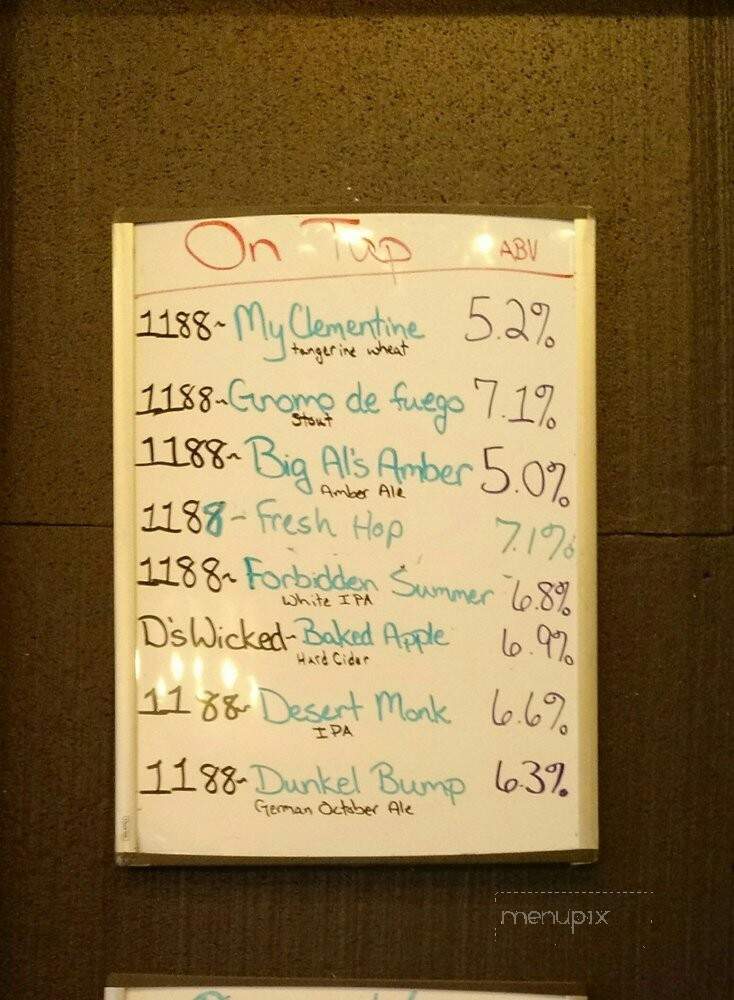 On Tap ABV
1188~ My Clementine 5.2%
tangerine wheat
1188~ Gnome de fuego 7.1%
Stout
1188~ Big Al's Amber 5.0%
Amber Ale
1188- Fresh Hop 7.1%
1188~ Forbidden Summer 6.8%
White IPA
D's Wicked~ Baked Apple 6.9%
Hard Cider
1188~ Desert Monk 6.6%
IPA
1188~ Dunkel Bump 6.3%
German October Ale
menupix